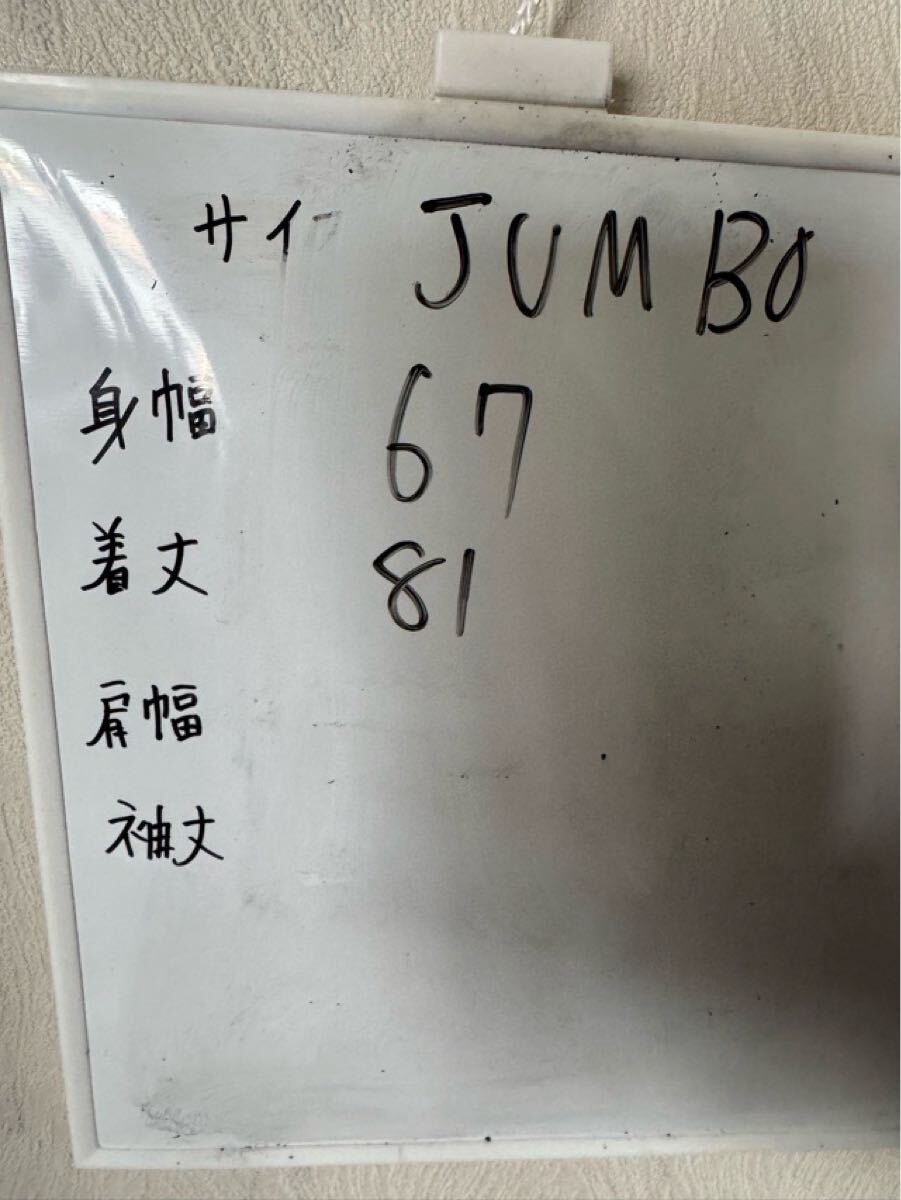 サイ JUMBO
身幅 67
着丈 81
肩幅
袖丈